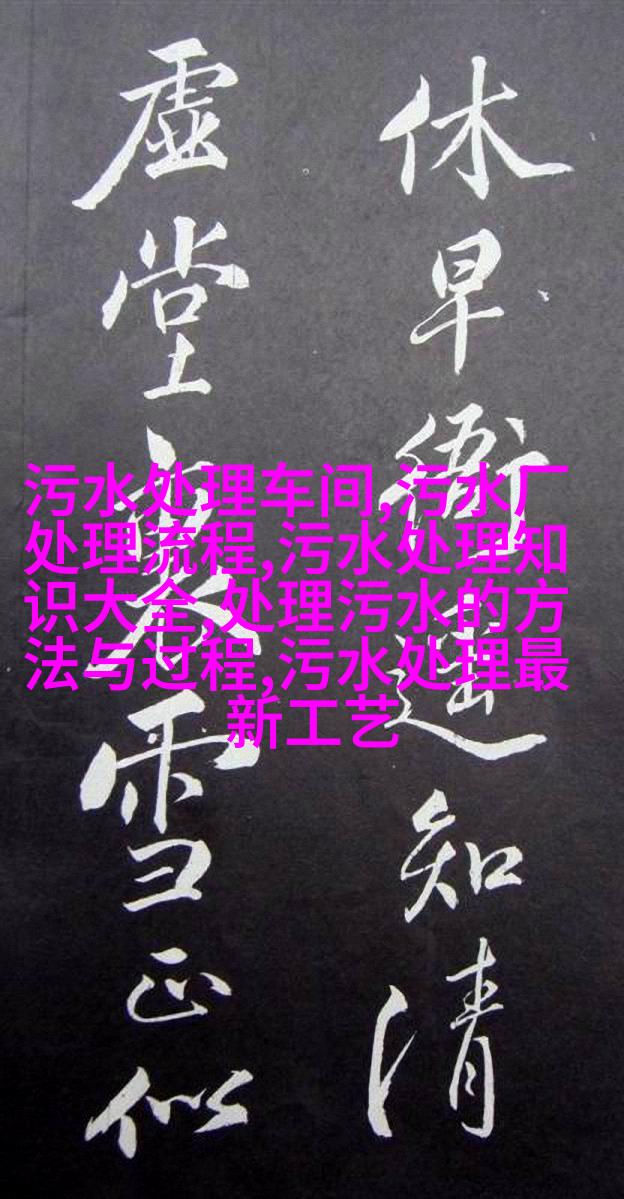 休早衙遥知清
虚堂裏雪正似
污水处理车间,污水厂
处理流程,污水处理知
识大全,处理污水的方
法与过程,污水处理最
新工艺